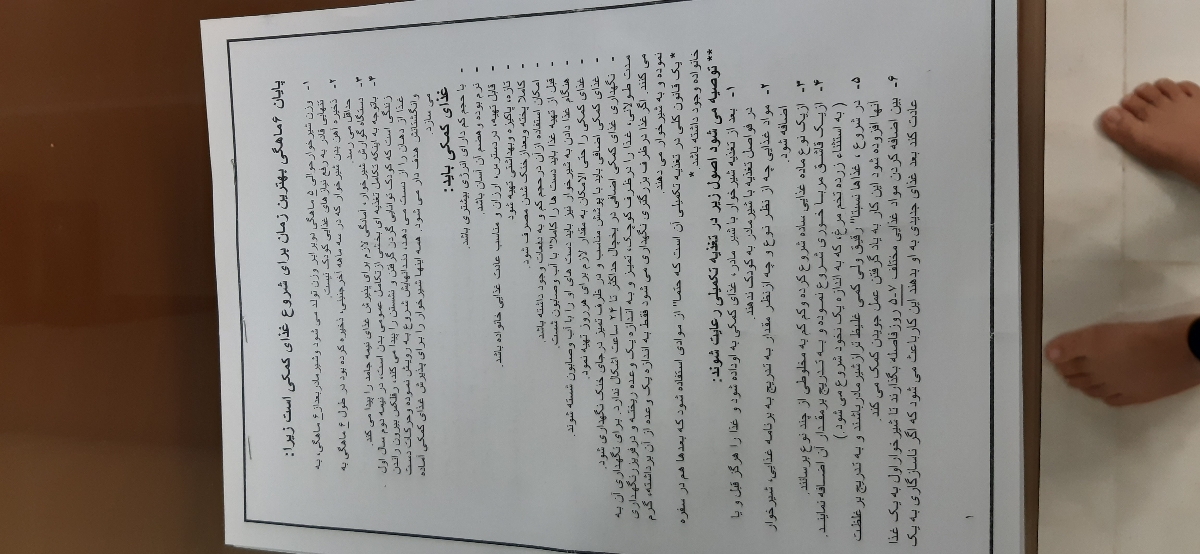 پایان ۶ ماهگی بهترین زمان برای شروع غذای کمکی است زیرا:
۱- وزن شیرخوار حوالی ۵ ماهگی دو برابر وزن تولد می شود وشیر مادر بعداز ۶ ماهگی، به
تنهایی قادر به رفع نیاز های غذایی کودک نیست.
۲- ذخیره آهن بدن شیرخوار که در سه ماهه آخرجنینی، ذخیره کرده بود در طول ۶ ماهگی به
حداقل می رسد.
۳- دستگاه گوارش شیرخوار، آمادگی لازم برای پذیرش غذای نیمه جامد، را پیدا می کند.
۴- باتوجه به اینکه تکامل تغذیه ای بخشی ازتکامل عمومی بدن است، در نیمه دوم سال اول
زندگی است که کودک توانایی گردن گرفتن و نشستن را پیدا می کند، رفلکس بیرون راندن
غذا از دهان را از دست می دهد، دندانهایش شروع به رویش نموده وحرکات دست
وانگشتانش هدف دار می شود. همه اینها شیرخوار را برای پذیرش غذای کمکی آماده
می سازد.
غذای کمکی باید:
- با حجم کم دارای انرژی بیشتری باشد.
- نرم بوده و هضم آن آسان باشد.
- قابل تهیه، در دسترس، ارزان و مناسب عادت غذایی خانواده باشد.
- تازه، پاکیزه وبهداشتی تهیه شود.
- کاملا پخته وبعداز خنک شدن مصرف شود.
- امکان استفاده از آن در حجم کم و به دفعات وجود داشته باشد.
- قبل از تهیه غذا باید دست ها را کاملا" با آب وصابون شست.
- هنگام غذا دادن به شیرخوار نیز باید دست های او را با آب وصابون شسته شوند
- غذای کمکی را حتی الامکان به مقدار لازم برای هرروز تهیه نمود.
- غذای کمکی اضافی باید با پوشش مناسب و در ظرف تمیز درجای خنک نگهداری شود.
- نگهداری غذای کمکی اضافی در یخچال حداکثر تا ۲۴ ساعت اشکال ندارد. برای نگهداری آن به
مدت طولانی، غذا را در ظرف کوچک، تمیز و به اندازه یک وعده ریخته و در فریزر نگهداری
می کنند. اگر غذا در ظرف بزرگتری نگهداری می شود، فقط به اندازه یک وعده از آن برداشته، گرم
نموده و به شیرخوار می دهند.
* یک قانون کلی در تغذیه تکمیلی آن است که حتما" از موادی استفاده شود که بعدها هم در سفره
خانواده وجود داشته باشد. *
** توصیه می شود اصول زیر در تغذیه تکمیلی رعایت شوند:
۱- بعد از تغذیه شیرخوار با شیر مادر، غذای کمکی به اوداده شود و غذا را هرگز قبل و یا
در فواصل تغذیه با شیر مادر به کودک ندهند
۲- مواد غذایی چه از نظر نوع و چه ازنظر مقدار به تدریج به برنامه غذایی، شیرخوار
اضافه شود.
۳- ازیک نوع ماده غذایی ساده شروع کرده وکم کم به مخلوطی از چند نوع برسانند.
۴- ازیک قاشق مربا خوری شروع نموده و به تدریج بر مقدار آن اضافه نمایند.
( به استثناء زرده تخم مرغ، که به اندازه یک نخود شروع می شود.)
۵- در شروع ، غذاها نسبتا" رقیق ولی کمی غلیظ تر از شیر مادر باشند و به تدریج بر غلظت
آنها افزوده شود این کار به یاد گرفتن عمل جویدن کمک می کند.
۶- بین اضافه کردن مواد غذایی مختلف ۷-۵ روزفاصله بگذارند تا شیرخوار اول به یک غذا
عادت کند بعد غذای جدیدی به او بدهند این کار باعث می شود که اگر ناسازگاری به یک
۱